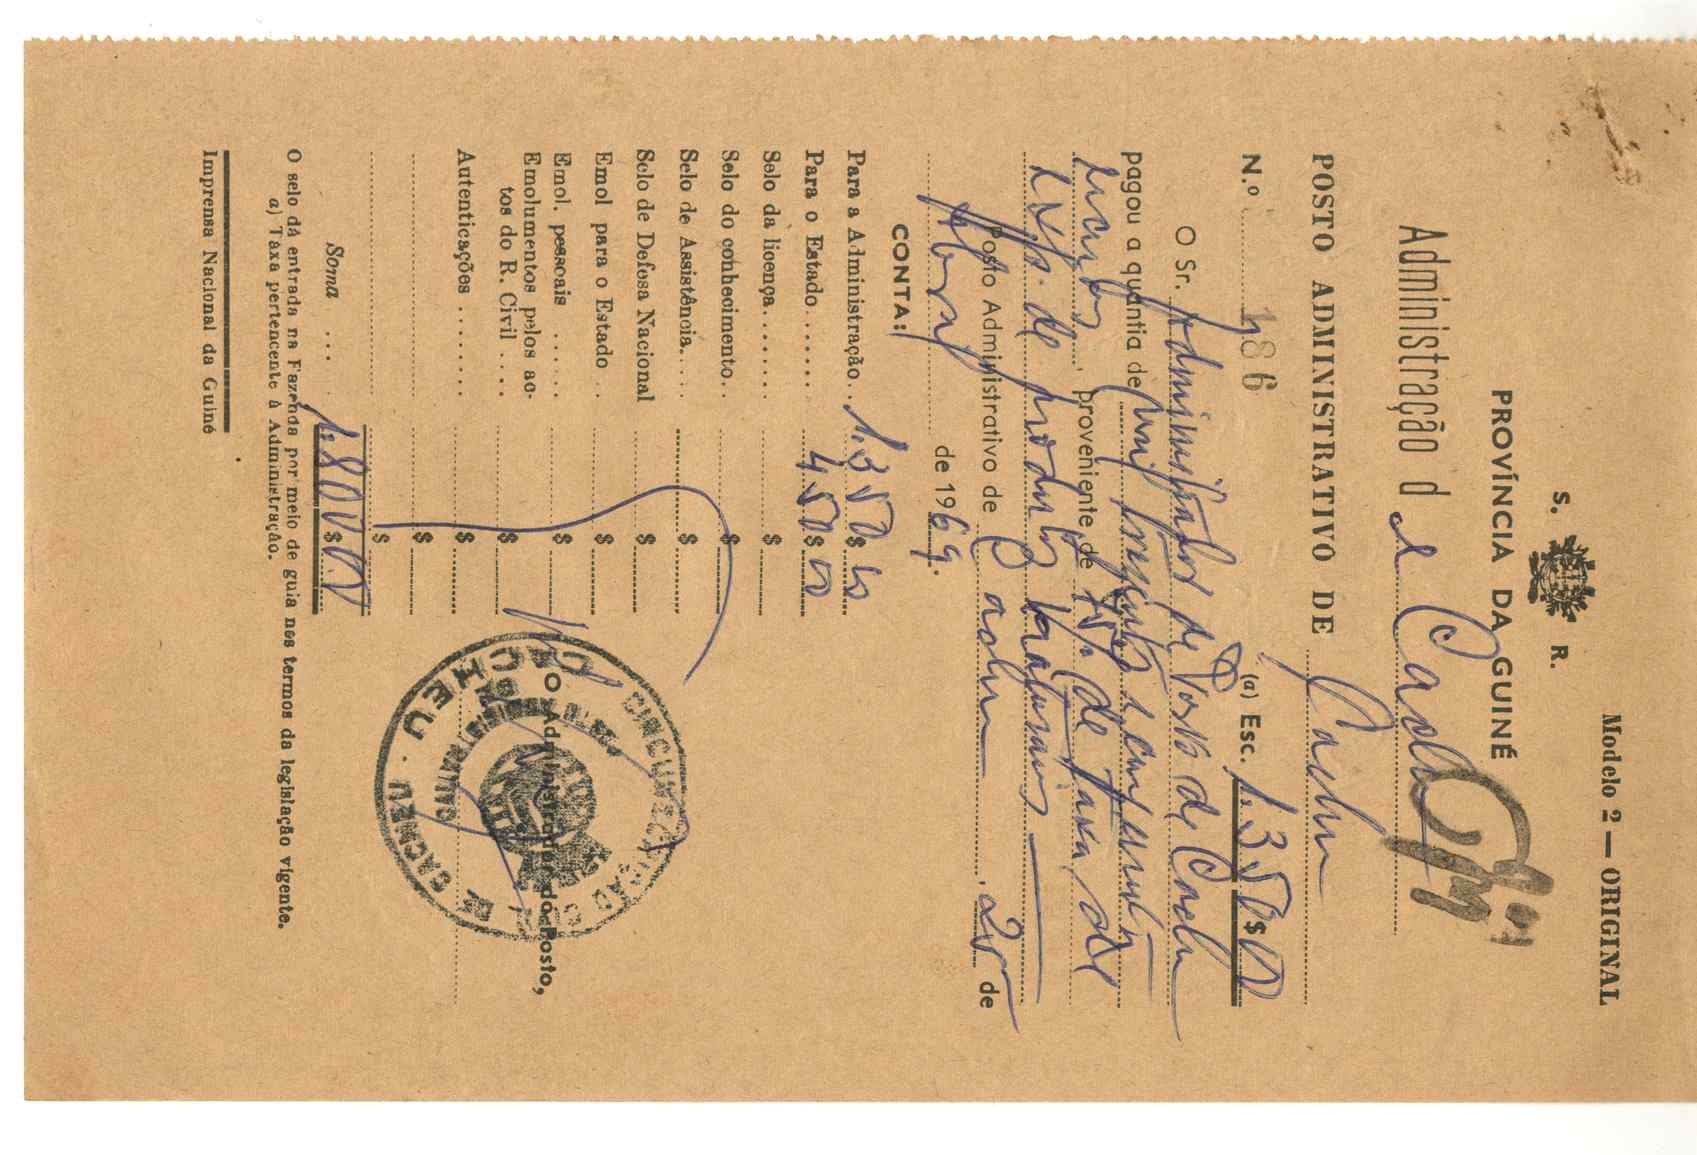 Modelo 2 — ORIGINAL
S. R.
PROVÍNCIA DA GUINÉ
Administração d e Cacheu
POSTO ADMINISTRATIVO DE Cacheu
N.º 186 (a) Esc. 1.350$00
O Sr. Administrador de Posto de Cacheu
pagou a quantia de mil trezentos e cinquenta
escudos proveniente de 75% de Taxa de
25% de produtos naturais
Posto Administrativo de Cacheu, 25 de
Abril de 1969.
CONTA:
Para a Administração.. 1.350$00
Para o Estado...... 450$00
Selo da licença...... $
Selo do conhecimento.. $
Selo de Assistência.... $
Selo de Defesa Nacional $
Emol para o Estado .. $
Emol. pessoais ...... $
Emolumentos pelos ac-
tos do R. Civil .... $
Autenticações ....... $
$
$
Soma ... 1.800$00
O Administrador do Posto,
CIRCUNSCRIÇÃO DE CACHEU
CACHEU
O selo dá entrada na Fazenda por meio de guia nos termos da legislação vigente.
a) Taxa pertencente à Administração.
Imprensa Nacional da Guiné